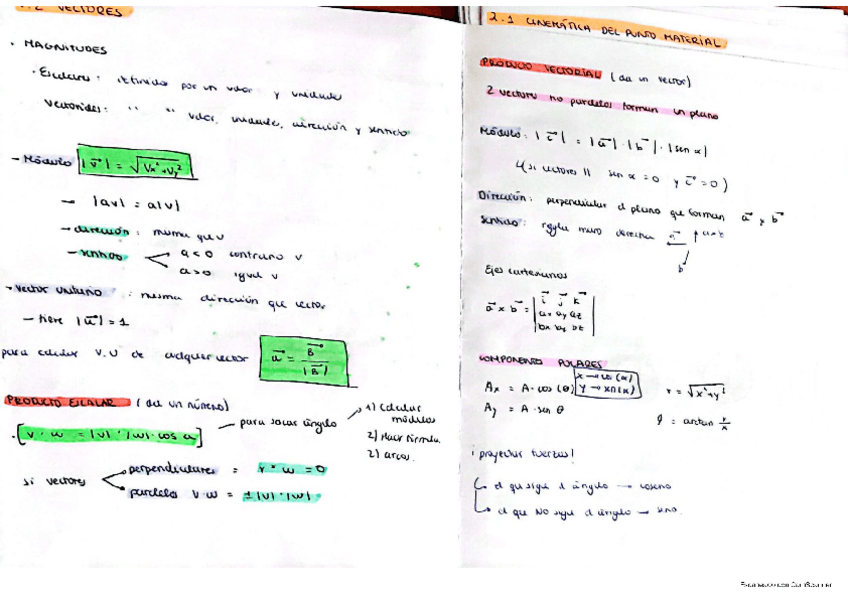 1.2 VECTORES
· MAGNITUDES
· Escalares: definidas por un valor y unidades
Vectoriales: " " valor, unidades, dirección y sentido
- Módulo |v⃗| = √Vx²+Vy²
- |av| = a|v|
- dirección: misma que v
- sentido
a<0 contrario v
a>0 igual v
- Vector unitario: misma dirección que vector
- tiene |u⃗| = 1
para calcular V.U de cualquier vector u⃗ = B⃗ / |B⃗|
PRODUCTO ESCALAR (da un número)
· [v · w = |v| · |w| · cos α]
para sacar ángulo
1) Calcular módulos
2) Hacer fórmula
2) arcos.
si vectores
perpendiculares = v · w = 0
paralelos v · w = ± |v| · |w|
2.1 CINEMÁTICA DEL PUNTO MATERIAL
PRODUCTO VECTORIAL (da un vector)
2 vectores no paralelos forman un plano
Módulo: |c⃗| = |a⃗| · |b⃗| · |sen α|
(si vectores || sen α = 0 y c⃗ = 0)
Dirección: perpendicular al plano que forman a⃗ y b⃗
Sentido: regla mano derecha a⃗ a×b
b
Ejes cartesianos
a⃗ × b⃗ = | i⃗ j⃗ k⃗
ax ay az
bx by bz |
COMPONENTES POLARES
x → cos (α)
y → sen (α)
Ax = A · cos (θ)
r = √x²+y²
Ay = A · sen θ
θ = arctan y/x
¡proyectar fuerzas!
el que sigue el ángulo → coseno
el que NO sigue el ángulo → seno.
Escaneado con CamScanner